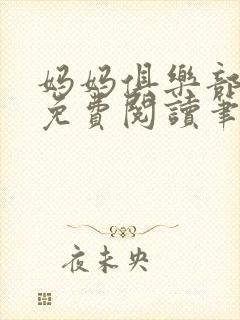 妈妈俱樂部
免費閱讀筆
夜未央